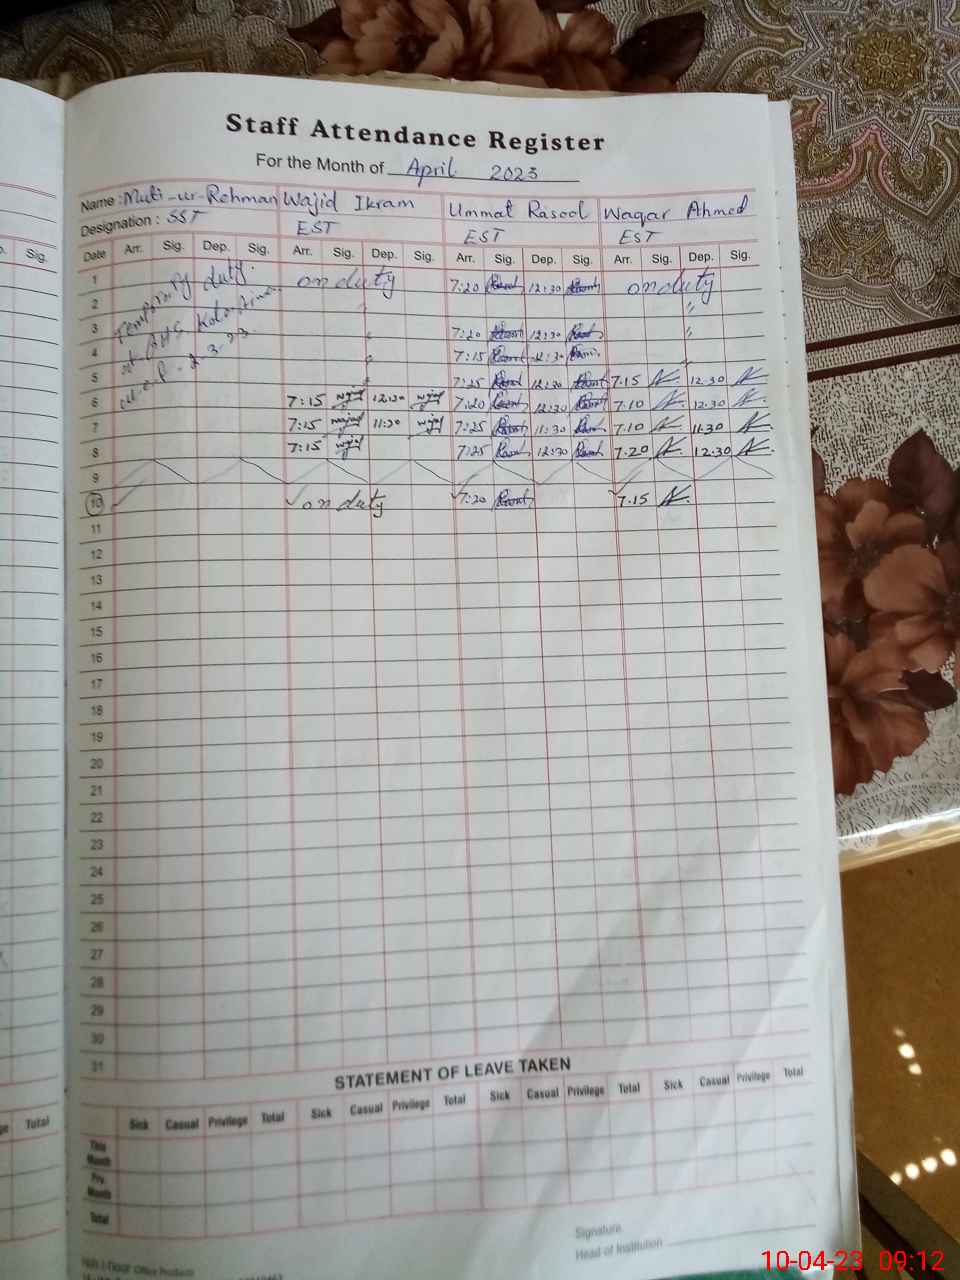 Staff Attendance Register
For the Month of April 2023
Name : Muti-ur-Rehman Wajid Ikram Ummat Rasool Waqar Ahmed
Designation : SST EST EST EST
Date Arr. Sig. Dep. Sig. Arr. Sig. Dep. Sig. Arr. Sig. Dep. Sig. Arr. Sig. Dep. Sig.
Sig.
1 Temporary duty. on duty 7:20 12:30 on duty
2
3 7:20 12:30
4 7:15 12:30
5 7:25 12:30 7:15 12:30
6 7:15 wajid 12:30 wajid 7:20 12:30 7:10 12:30
7 7:15 wajid 11:30 wajid 7:25 11:30 7:10 11:30
8 7:15 wajid 7:25 12:30 7:20 12:30
9
10 on duty 7:20 7:15
11
12
13
14
15
16
17
18
19
20
21
22
23
24
25
26
27
28
29
30
31
STATEMENT OF LEAVE TAKEN
Sick Casual Privilege Total Sick Casual Privilege Total Sick Casual Privilege Total Sick Casual Privilege Total
Total
This
Month
Pre.
Month
Total
Signature
Head of Institution
10-04-23 09:12